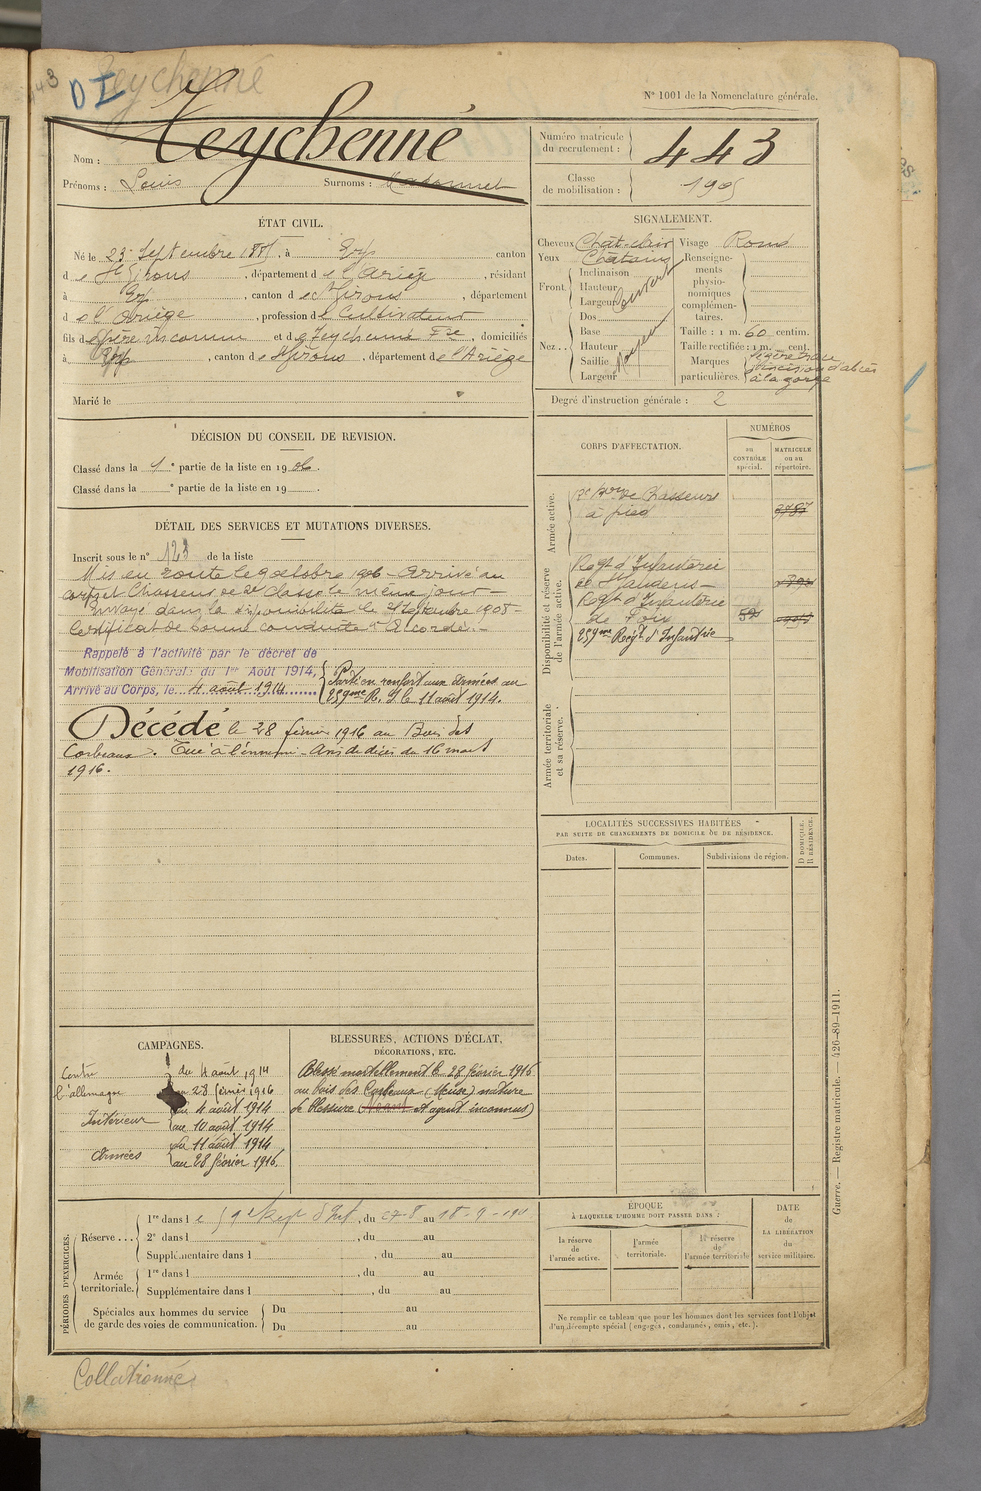 Teychenné
D I
N° 1001 de la Nomenclature générale.
Nom : Teychenné
Prénoms : Louis Surnoms :
Numéro matricule du recrutement : 443
Classe de mobilisation : 1905
ÉTAT CIVIL.
Né le 23 Septembre 1885, à Erp canton
de St Girons, département de l'Ariège, résidant
à Erp, canton de St Girons, département
de l'Ariège, profession de Cultivateur
fils de père inconnu et de Teychenné Fse, domiciliés
à Erp, canton de St Girons, département de l'Ariège
Marié le
SIGNALEMENT.
Cheveux Chât-clair Visage Rond
Yeux Châtains
Front. Inclinaison Hauteur Largeur Couvert
Nez.. Dos Base Hauteur Saillie Largeur Moyen
Renseignements physionomiques complémentaires.
Taille : 1 m. 60 centim.
Taille rectifiée : 1 m. cent.
Marques particulières. légère trace d'incision d'abcès
à la gorge
Degré d'instruction générale : 2
DÉCISION DU CONSEIL DE REVISION.
Classé dans la 1e partie de la liste en 1906.
Classé dans la e partie de la liste en 19 .
DÉTAIL DES SERVICES ET MUTATIONS DIVERSES.
Inscrit sous le n° 123 de la liste
Mis en route le 9 octobre 1906 - Arrivé au
corps et Chasseur de 2e classe le même jour -
Envoyé dans la disponibilité le Septembre 1908 -
Certificat de bonne conduite "Accordé" -
Rappelé à l'activité par le décret de
Mobilisation Générale du 1er Août 1914,
Arrivé au Corps, le 4 août 1914
Parti en renfort aux Armées au
259me R. I. le 11 août 1914.
Décédé le 28 février 1916 au Bois des
Corbeaux. Tué à l'ennemi - Avis de décès du 16 mars
1916.
CORPS D'AFFECTATION.
NUMÉROS
au CONTRÔLE spécial.
MATRICULE ou au répertoire.
Armée active.
Bon de Chasseurs
à pied
Disponibilité et réserve de l'armée active.
Regt d'Infanterie
de St Gaudens -
Regt d'Infanterie
de Foix
259me Régt d'Infanterie
Armée territoriale et sa réserve.
LOCALITÉS SUCCESSIVES HABITÉES
PAR SUITE DE CHANGEMENTS DE DOMICILE OU DE RÉSIDENCE.
Dates. Communes. Subdivisions de région. D DOMICILE. R RÉSIDENCE.
CAMPAGNES.
Contre l'allemagne du 4 août 1914
au 28 février 1916
Intérieur du 4 août 1914
au 10 août 1914
Armées du 11 août 1914
au 28 février 1916.
BLESSURES, ACTIONS D'ÉCLAT,
DÉCORATIONS, ETC.
Blessé mortellement le 28 février 1916
au bois des Corbeaux (Meuse) nature
de blessure et agent inconnus)
PÉRIODES D'EXERCICES.
Réserve ...
1re dans le 59e Regt d'Inf., du 27-8 au 18-9-191
2e dans l , du au
Supplémentaire dans l , du au
Armée territoriale.
1re dans l , du au
Supplémentaire dans l , du au
Spéciales aux hommes du service
de garde des voies de communication.
Du au
Du au
ÉPOQUE
À LAQUELLE L'HOMME DOIT PASSER DANS :
la réserve de l'armée active.
l'armée territoriale.
la réserve de l'armée territoriale
DATE de LA LIBÉRATION du service militaire.
Ne remplir ce tableau que pour les hommes dont les services font l'objet
d'un décompte spécial (engagés, condamnés, omis, etc.).
Guerre. — Registre matricule. — 426-89-1911.
Collationné